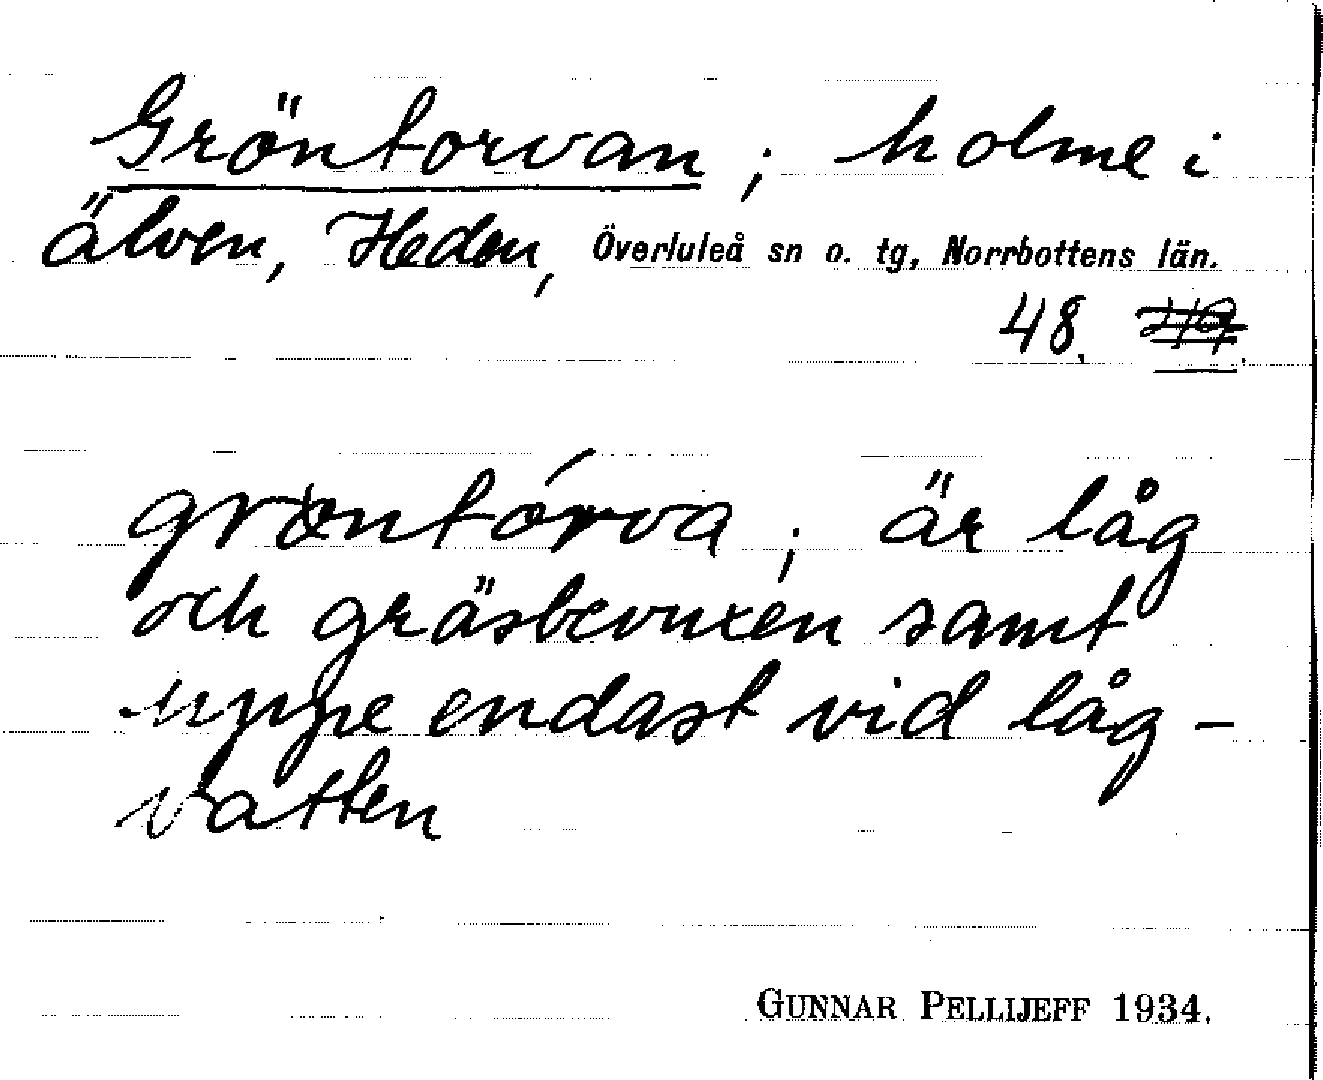 Gröntorvan; holme i
älven, Heden, Överluleå sn o. tg, Norrbottens län.
48.
gröntórva; är låg
och gräsbevuxen samt
uppe endast vid låg-
vatten
GUNNAR PELLIJEFF 1934.